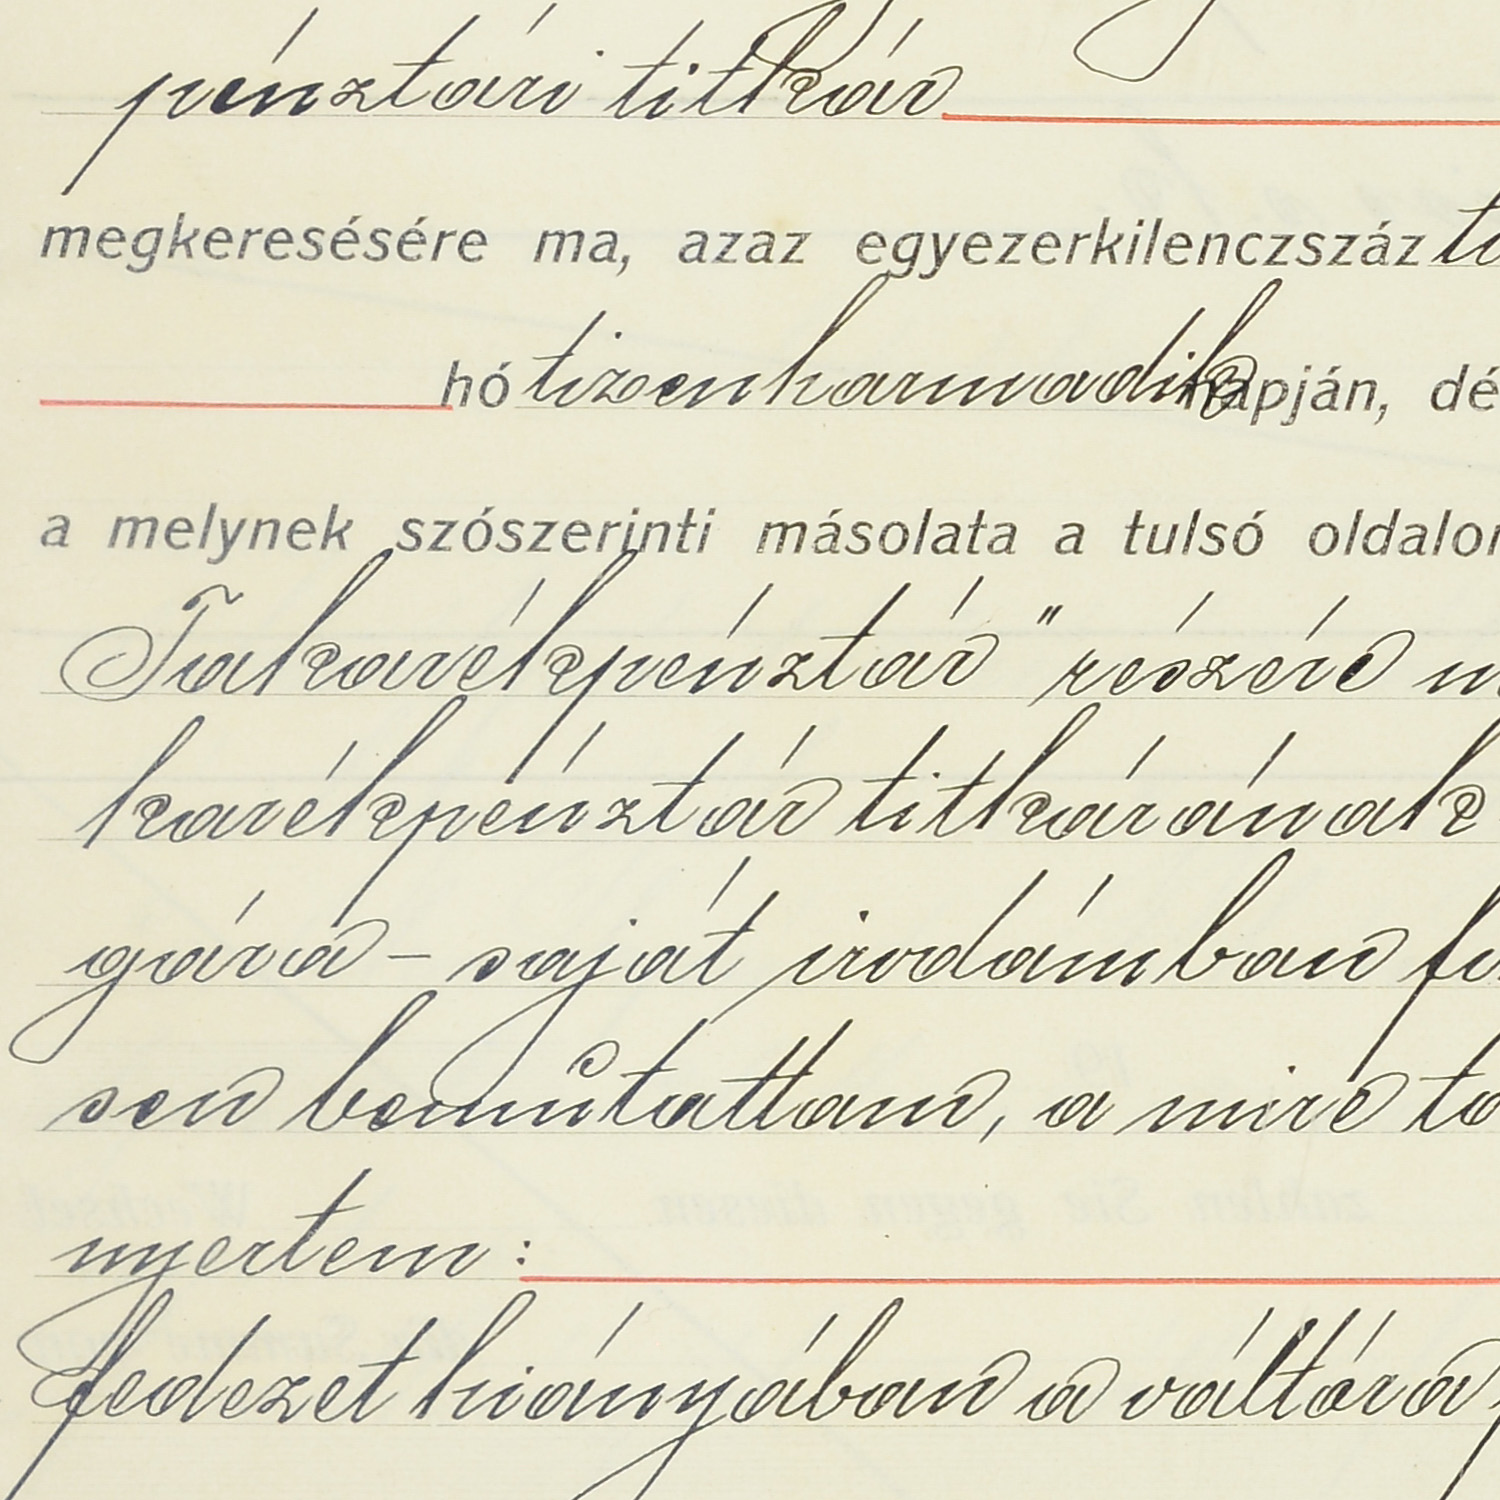 pénztári titkár
megkeresésére ma, azaz egyezerkilenczszáz
hó tizenharmadik napján, dé
a melynek szószerinti másolata a tulsó oldalon
Takarékpénztár" részére
karékpénztár titkárának
gára – saját irodámban
sen bemutattam, a mire
nyertem:
fedezet hiányában a váltóra